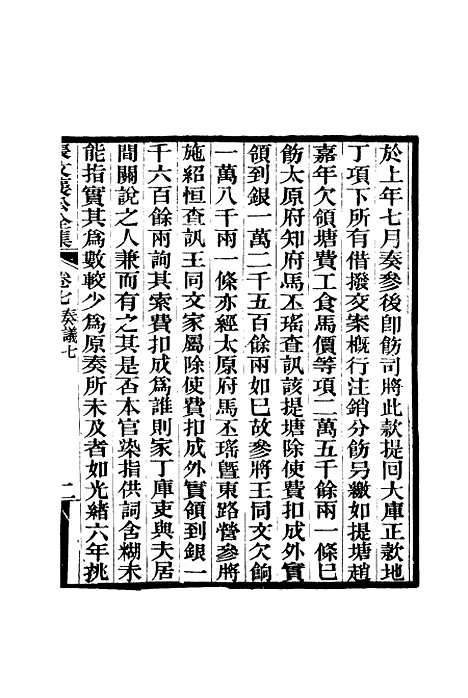 於上年七月奏參後卽飭司將此款提回大庫正款地
丁項下所有借撥交案槪行注銷分飭另繳如提塘趙
嘉年欠領塘費工食馬價等項二萬五千餘兩一條已
飭太原府知府馬丕瑤查訊該提塘除使費扣成外實
領到銀一萬二千五百餘兩如已故參將王同文欠餉
一萬八千兩一條亦經太原府馬丕瑤曁東路營參將
施紹恒查訊王同文家屬除使費扣成外實領到銀一
千六百餘兩詢其索費扣成爲誰則家丁庫吏與夫居
間關說之人兼而有之其是否本官染指供詞含糊未
能指實其爲數較少爲原奏所未及者如光緖六年挑
張文襄公全集
卷七 奏議七
二